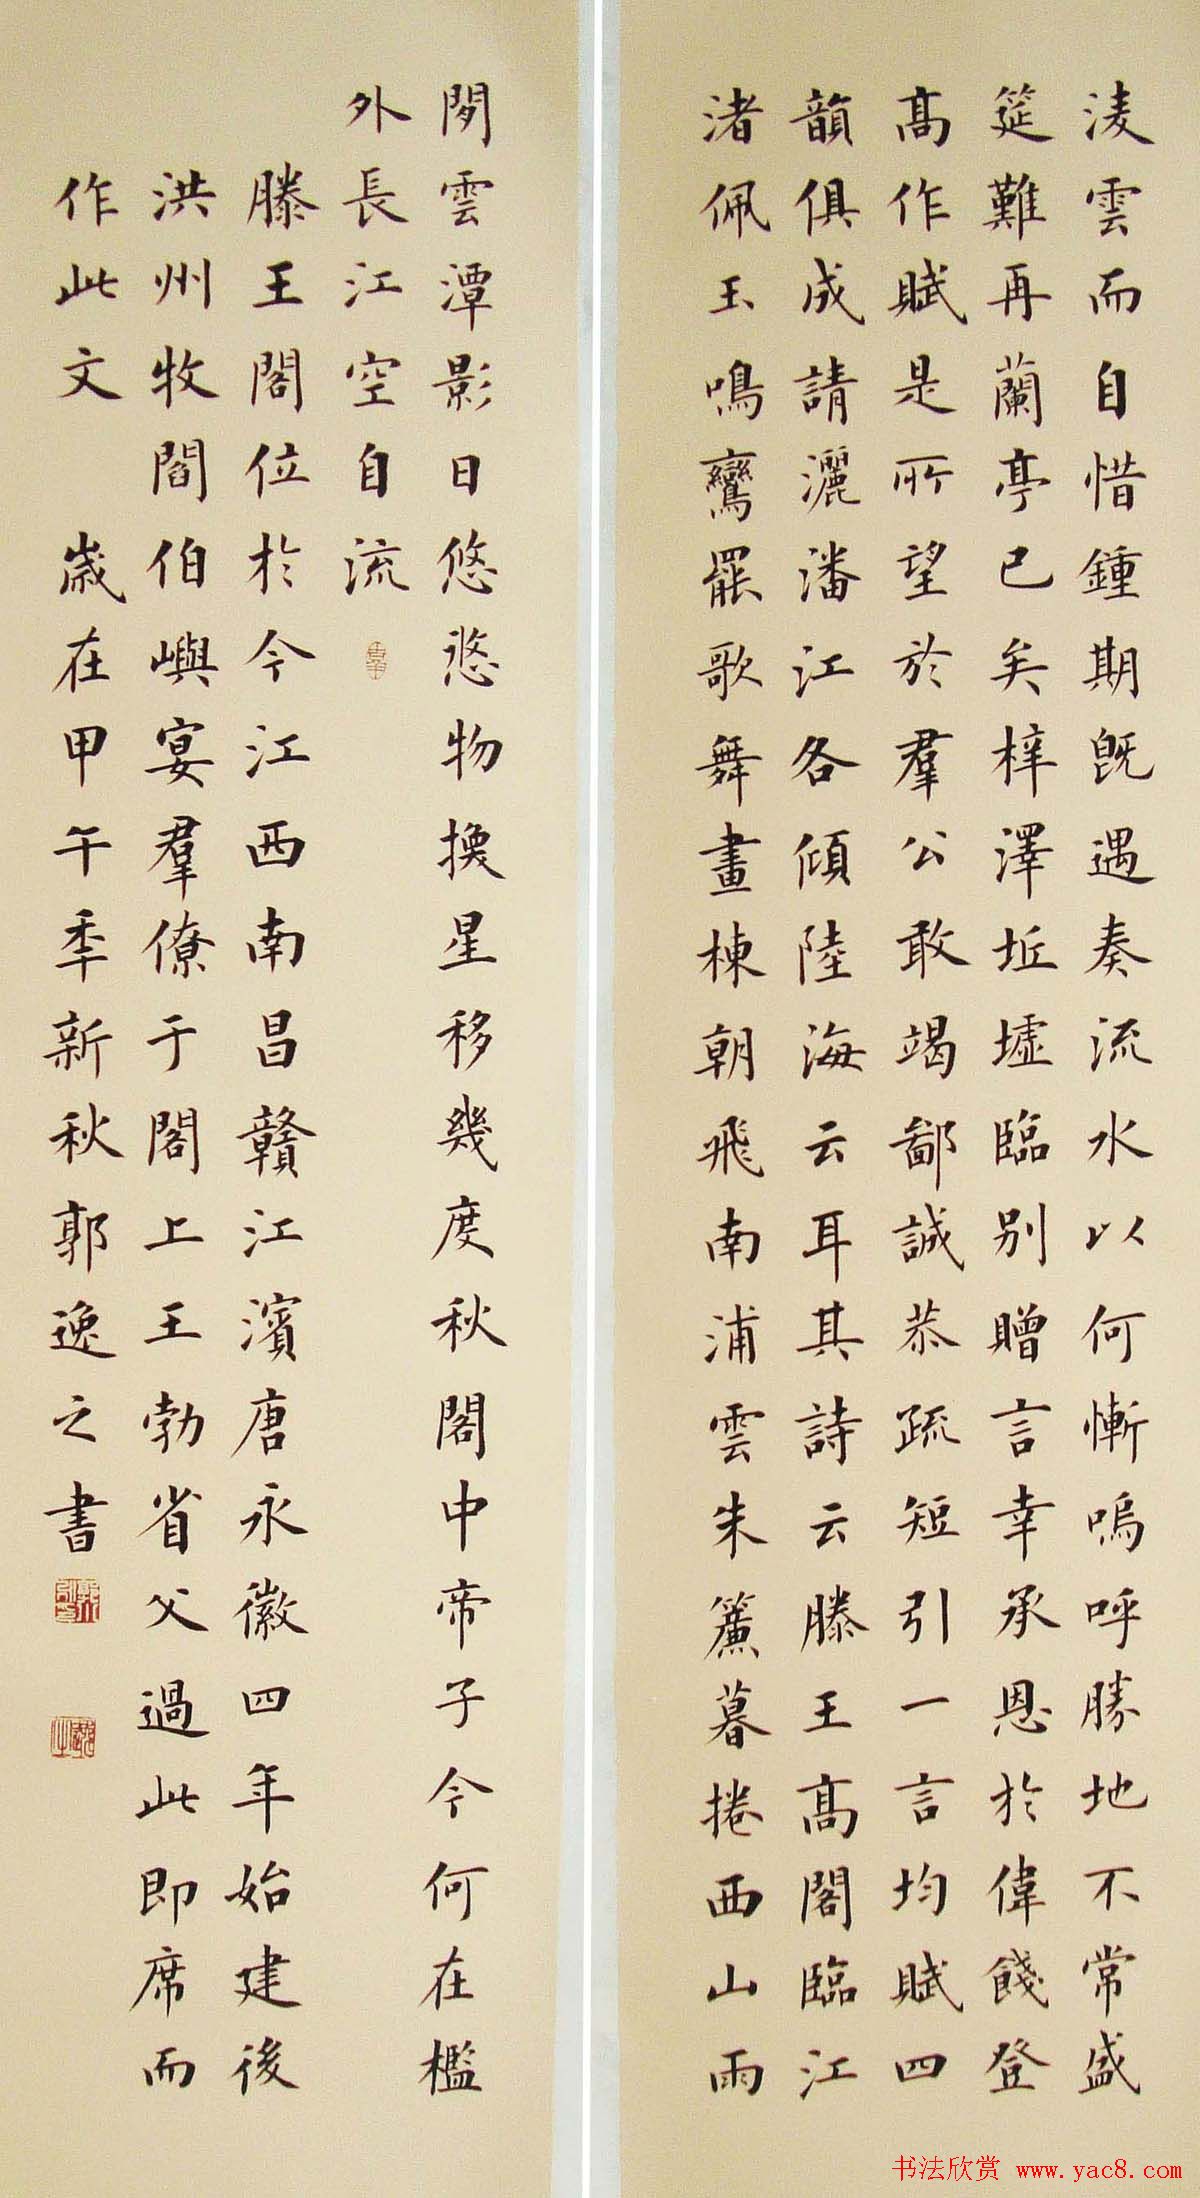 淩雲而自惜鍾期旣遇奏流水以何慚嗚呼勝地不常盛
筵難再蘭亭已矣梓澤坵墟臨別贈言幸承恩於偉餞登
高作賦是所望於羣公敢竭鄙誠恭疏短引一言均賦四
韻俱成請灑潘江各傾陸海云耳其詩云滕王高閣臨江
渚佩玉鳴鸞罷歌舞畫棟朝飛南浦雲朱簾暮捲西山雨
閒雲潭影日悠悠物換星移幾度秋閣中帝子今何在檻
外長江空自流
滕王閣位於今江西南昌贛江濱唐永徽四年始建後
洪州牧閻伯嶼宴羣僚于閣上王勃省父過此即席而
作此文 歲在甲午秊新秋郭逸之書
书法欣赏 www.yac8.com